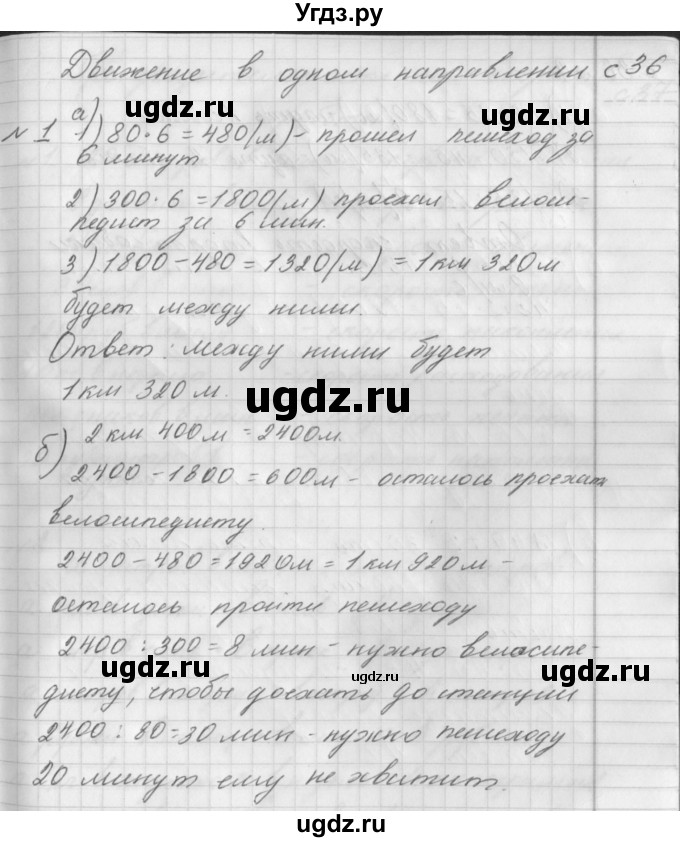 Угдз.ру
Движение в одном направлении с 36
№ 1 а)
1) 80·6=480(м)- прошел пешеход за
6 минут
2) 300·6=1800(м) проехал велоси-
педист за 6 мин.
3) 1800-480=1320(м)=1км 320м
будет между ними.
Ответ: между ними будет
1 км 320 м.
б) 2 км 400м=2400м.
2400-1800=600м- осталось проехать
велосипедисту.
2400-480=1920м=1км 920м-
осталось пройти пешеходу
2400:300=8 мин- нужно велосипе-
дисту, чтобы доехать до станции
2400:80=30 мин-нужно пешеходу
20 минут ему не хватит.
ugdz.ru
ugdz.ru
ugdz.ru
ugdz.ru
ugdz.ru
ugdz.ru
ugdz.ru
ugdz.ru
ugdz.ru
ugdz.ru
ugdz.ru
ugdz.ru